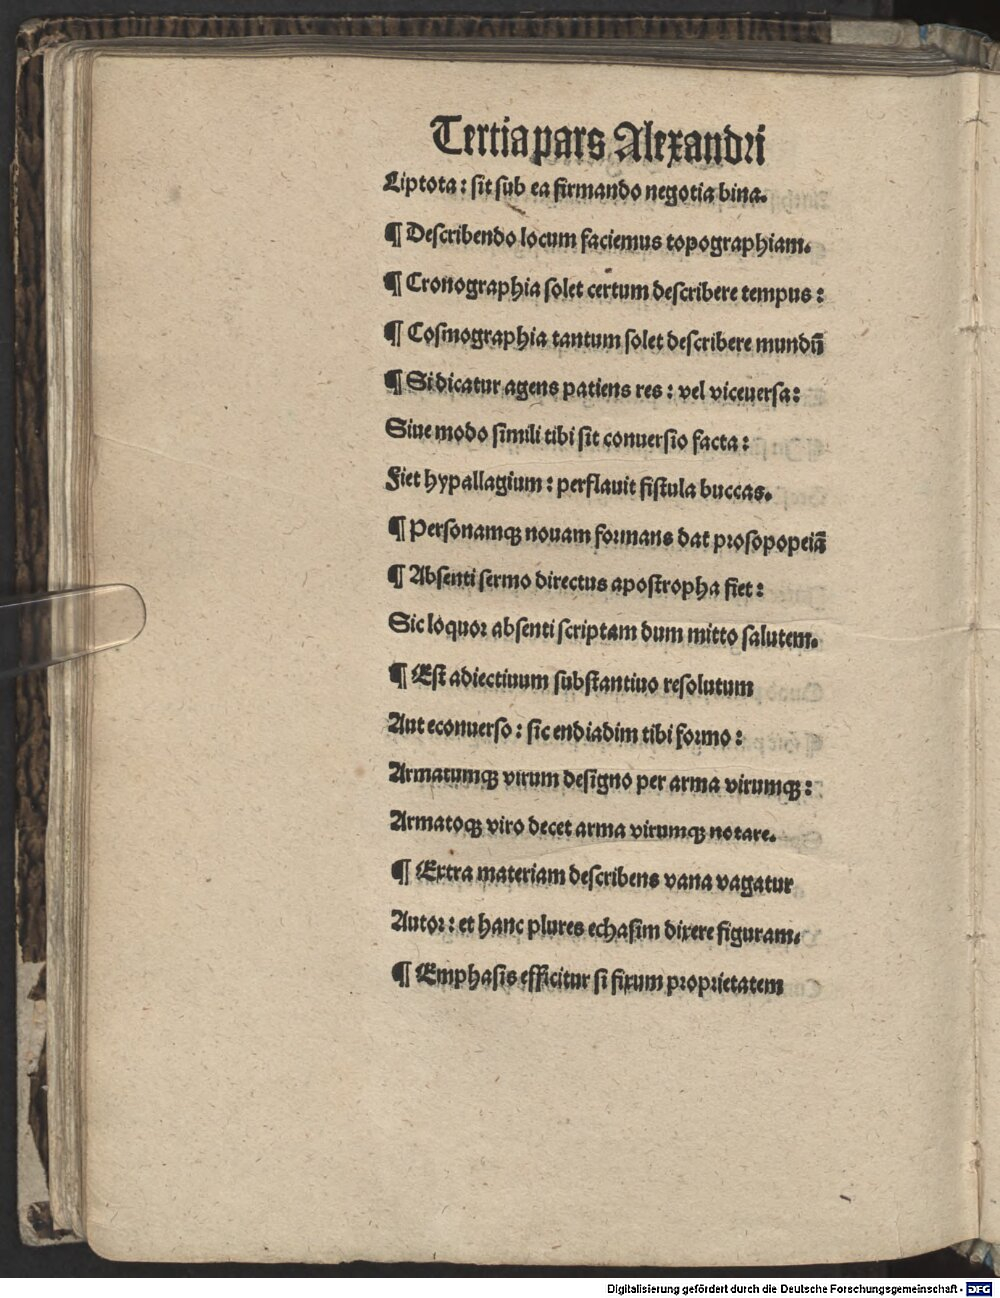 Tertia pars Alexandri
Liptota : sit sub ea firmando negotia bina.
¶ Describendo locum faciemus topographiam.
¶ Cronographia solet certum describere tempus :
¶ Cosmographia tantum solet describere mundū
¶ Si dicatur agens patiens res : vel viceuersa :
Siue modo simili tibi sit conuersio facta :
Fiet hypallagium : perflauit fistula buccas.
¶ Personamqꝫ nouam formans dat prosopopeiā
¶ Absenti sermo directus apostropha fiet :
Sic loquor absenti scriptam dum mitto salutem.
¶ Est adiectiuum substantiuo resolutum
Aut econuerso : sic endiadim tibi formo :
Armatumqꝫ virum designo per arma virumqꝫ :
Armatoqꝫ viro decet arma virumqꝫ notare.
¶ Extra materiam describens vana vagatur
Autor : et hanc plures echasim dixere figuram.
¶ Emphasis efficitur si fixum proprietatem
Digitalisierung gefördert durch die Deutsche Forschungsgemeinschaft - DFG